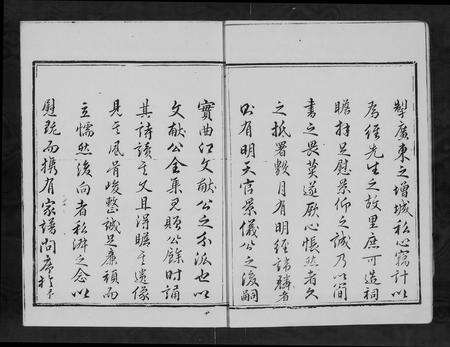 掣廣東之增城私心竊計以
為經先生之故里庶可造祠
瞻拜足慰景仰之誠乃以簡
書之畏莫遂厥心悵然者久
之抵署數月有明經諱麟者
出有明天官景儀公之後嗣
實曲江文献公之本派也以
文献公全集見貽公餘時誦
其詩讀其文且得瞻其遺像
見其風骨峻整誠足廉頑而
立懦然後向者私淑之念以
慰既而携有家譜向席於予